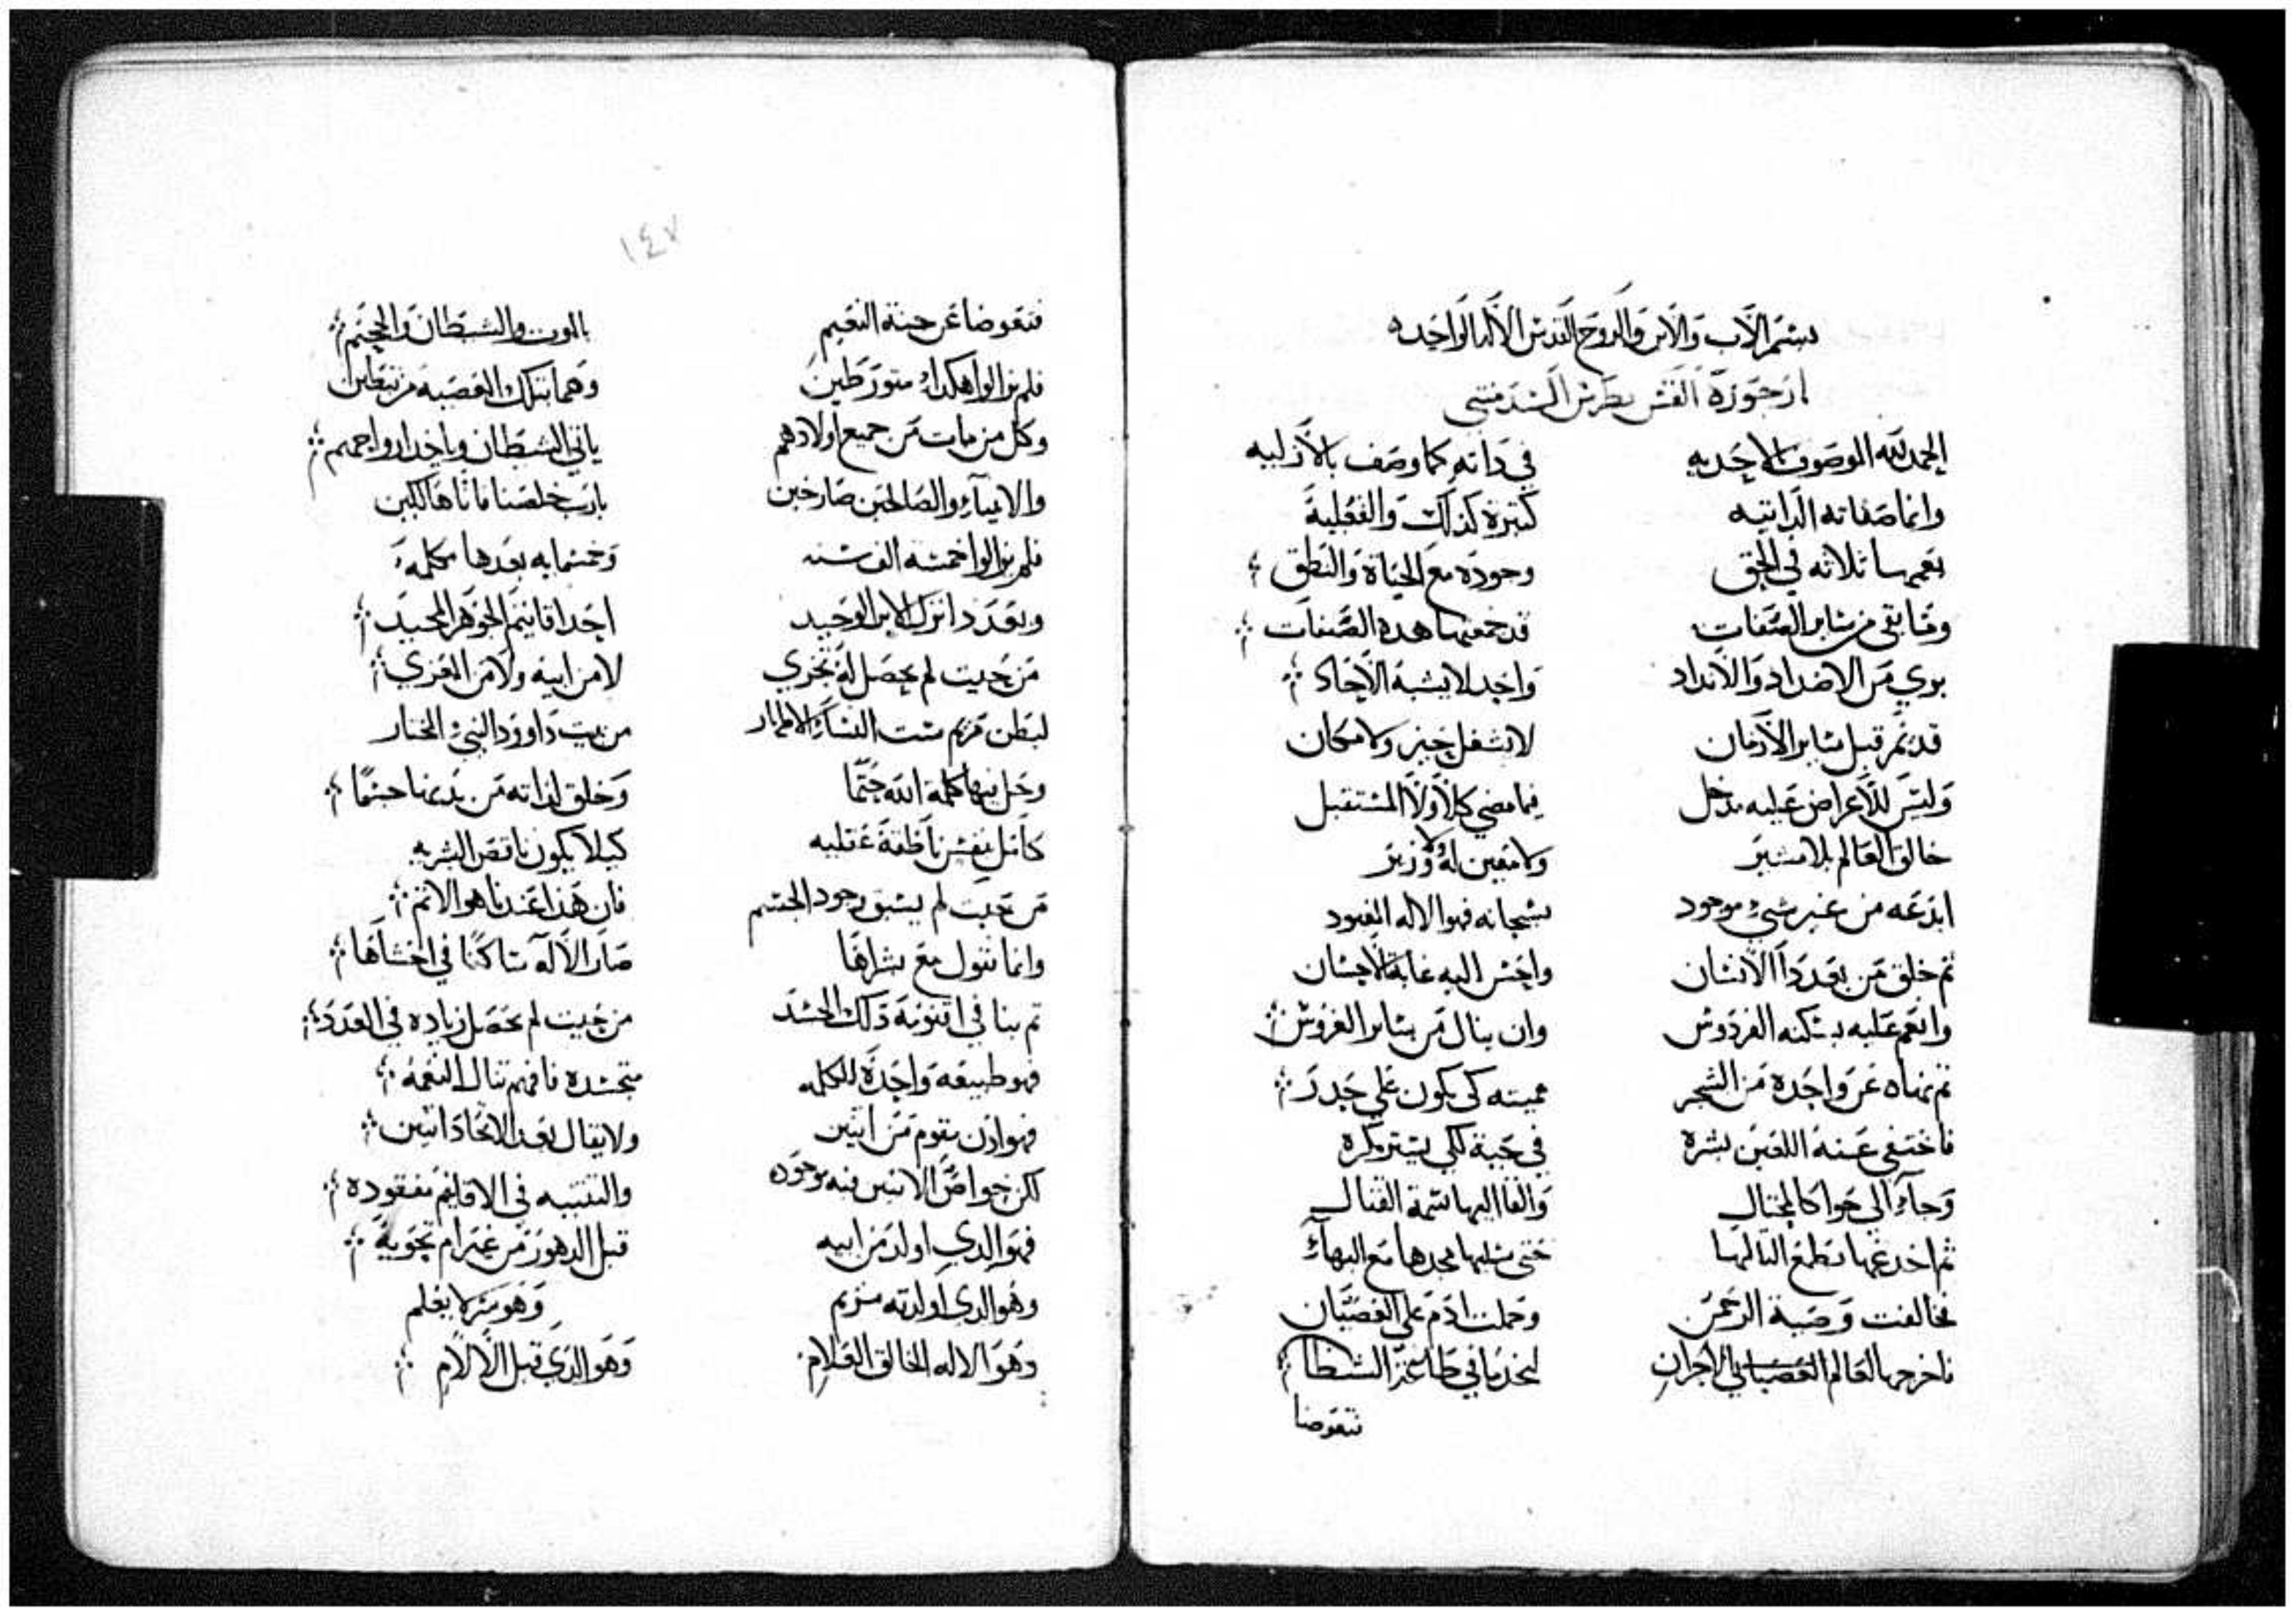 بسم الاب والابن والروح القدس الاله الواحد
ارجوزة القس بطرس السدمنتي
الحمد لله الموصوف بالاحديه في داته كما وصف بالازليه
وانما صفاته الداتيه كتيرة كذلك والفعليه
يعمها تلاته في الحق وجوده مع الحياة والنطق
وما بقي من ساير الصفات قد جمعتها هده الصفات
بري من الاضداد والانداد واحد لا يشبه الاحاد
قديم قبل ساير الازمان لا تشغل حيز ولا مكان
وليس للاعراض عليه مدخل فيما مضي كلا ولا المستقبل
خالق العالم بلا مشير ولا معين له ولا وزير
ابدعه من غير شيء موجود سبحانه فهوا الاله المعبود
تم خلق من بعد دا الانسان واحسن اليه غاية الاحسان
وانعم عليه بسكنه الفردوس وان ينال من ساير الغروس
تم نهاه عن واحدة من الشجر مميته كي يكون علي حدر
فاختفي عنه اللعين بشره في حية لكي يستر مكره
وجاء الي حوا كالمحتال والقا اليها سمة القتال
تم اخدعها بطمع التالها حتي سلبها مجدها مع البهاء
فخالفت وصية الرحمن وحملت ادم علي العصيان
فاخرجها لعالم الاحزان لنحدما في طاعة الشيطان
فتعوضا
١٤٧
فتعوضا عن جنة النعيم بالموت والشيطان والجحيم
فلم يزالوا هكداء متورطين وهما بتلك المعصية مرتبطين
وكل من مات من جميع اولادهم ياتي الشيطان وياخد ارواحهم
والانبياء والصالحين صارخين يارب خلصنا فاننا هالكين
فلم يزالوا خمسة الف سنه وخمسمايه بعدها مكمله
وبعد دا نزل الابن الوحيد احد اقانيم الجوهر المجيد
من حيت لم يحصل له تجزي لا من ابيه ولا من المعزي
لبطن مريم ست النساء الاطهار من بيت داوود النبي المختار
وحل فيها كلمة الله حتما وخلق لداته من بدنها جسما
كامل بنفس ناطقة عقليه كيلا يكون ناقص البشريه
من حيت لم يسبق وجود الجسم فان هدا عندنا هو الاتم
وانما نقول مع بشراها صار الاله ساكنا في احشاها
تم بنا في اقنومه دلك الجسد من حيت لم تحصل زياده في العدد
فهو طبيعه واحدة للكلمه متجسده فافهم تنال النعمه
فهو ادن مقوم من اتنين ولا يقال بعد الاتحاد اتنين
لكن خواص الاتنين فيه موجوده والتتنيه في الاقانيم مفقوده
فهو الدي اولد من ابيه قبل الدهور من غير ام تحويه
وهو الدي اولدته مريم وهو سر لا يعلم
وهو الاله الخالق العلام وهو الدي قبل الالام